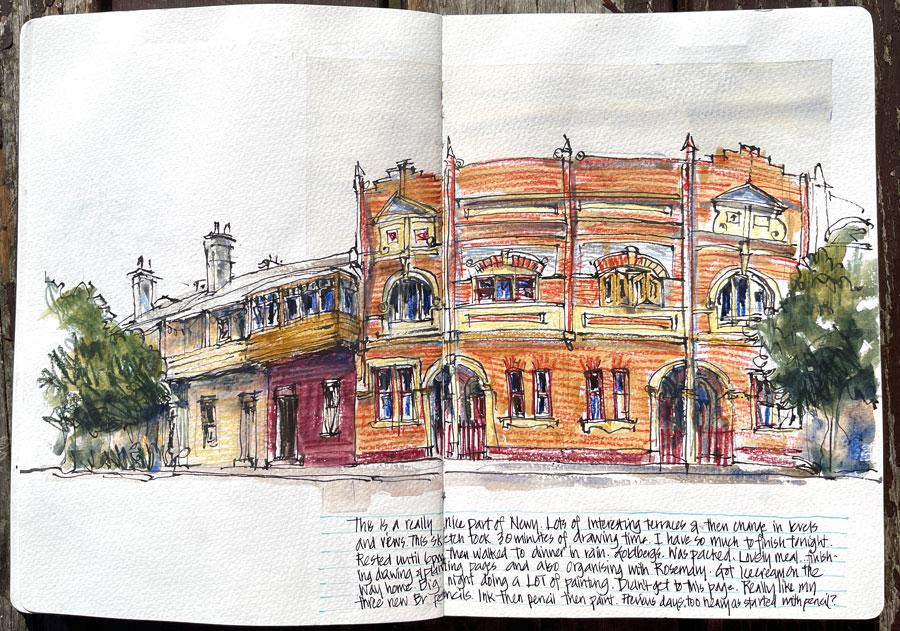 This is a really nice part of Newy. Lots of interesting terraces & then change in levels
and views. This sketch took 30 minutes of drawing time. I have so much to finish tonight.
Rested until 6pm then walked to dinner in rain. Goldbergs. Was packed. Lovely meal. finish-
ing drawing & painting pages and also organising with Rosemary. Got Icecream on the
way home. Big night doing a LOT of painting. Didn't get to this page. Really like my
three new Br pencils. Ink then pencil then paint. Previous days too heavy as started with pencil?